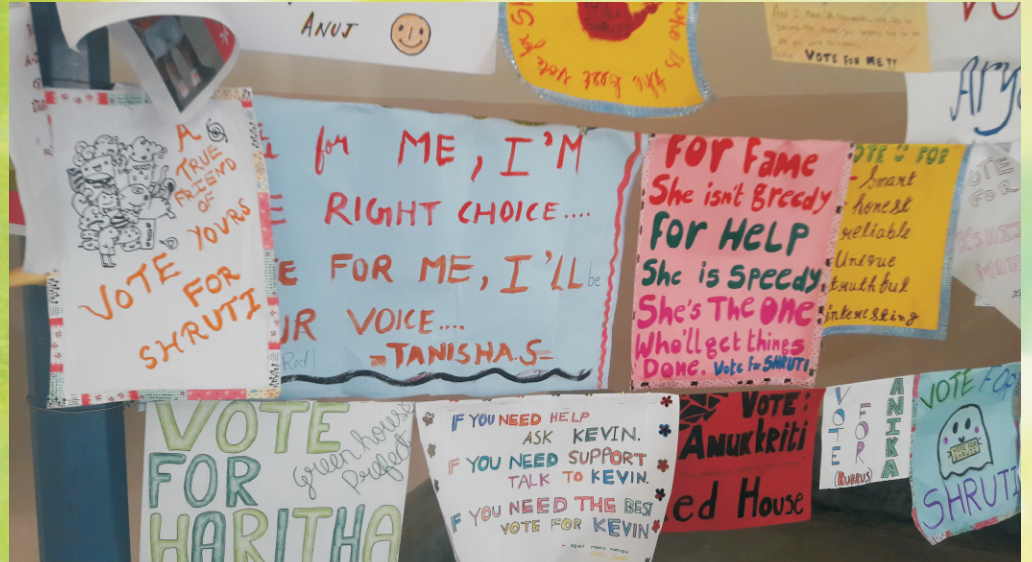 ANUJ
the best vote for
VOTE FOR ME!!
A
TRUE
FRIEND
OF
YOURS
VOTE
FOR
SHRUTI
for ME, I'M
RIGHT CHOICE....
FOR ME, I'LL be
UR VOICE....
=TANISHA.S=
FOR Fame
She isn't greedy
FOR HELP
She is speedy
She's The One
Who'll get things
Done. Vote for SHRUTI
OTE U FOR
- Smart
honest
reliable
Unique
truthful
interesting
OTE
FOR
VOTE
FOR
HARITHA
Green house
Prefect
IF YOU NEED HELP
ASK KEVIN.
IF YOU NEED SUPPORT
TALK TO KEVIN.
IF YOU NEED THE BEST
VOTE FOR KEVIN
VOTE:
Anukkriti
ed House
VOTE
FOR
ANIKA
VOTE FOR
SHRUTI